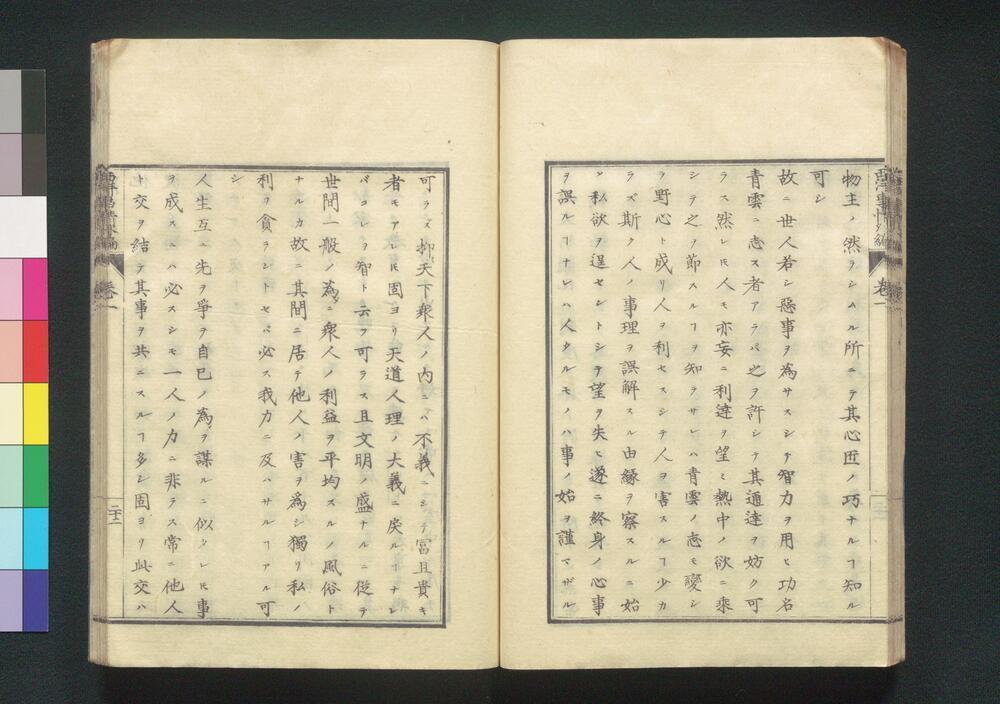 西洋事情外編
卷一
物主ノ然ラシムル所ニテ其心匠ノ巧ナルヿ知ル
可シ
故ニ世人若シ惡事ヲ為サスシテ智力ヲ用ヒ功名
青雲ニ志ス者アラバ之ヲ許シテ其通達ヲ妨ク可
ラス然レ𪜈人モ亦妄ニ利達ヲ望ミ熱中ノ欲ニ乘
シテ之ヲ節スルヿヲ知ラサレハ青雲ノ志モ變シ
テ野心ト成リ人ヲ利セスシテ人ヲ害スルヿ少カ
ラズ斯ク人ノ事理ヲ誤解スル由縁ヲ察スルニ始
メ私欲ヲ逞セントシテ望ヲ失ヒ遂ニ終身ノ心事
ヲ誤ルヿナレハ人タルモノハ事ノ始ヲ謹マザル
可ラズ抑天下衆人ノ内ニハ不義ニシテ富且貴キ
者モアレ𪜈固ヨリ天道人理ノ大義ニ戻ルヿナレ
バコレヲ智ト云フ可ラス且文明ノ盛ナルニ從テ
世間一般ノ為ニ衆人ノ利益ヲ平均スルノ風俗ト
ナルカ故ニ其間ニ居テ他人ノ害ヲ為シ獨リ私ノ
利ヲ貪ラントセバ必ス我力ニ及ハサルヿアル可
シ
人生互ニ先ヲ爭ヲ自己ノ為ヲ謀ルニ似タレ𪜈事
ヲ成スニハ必スシモ一人ノ力ニ非ラス常ニ他人
ト交ヲ結テ其事ヲ共ニスルヿ多シ固ヨリ此交ハ
卷一
二十二